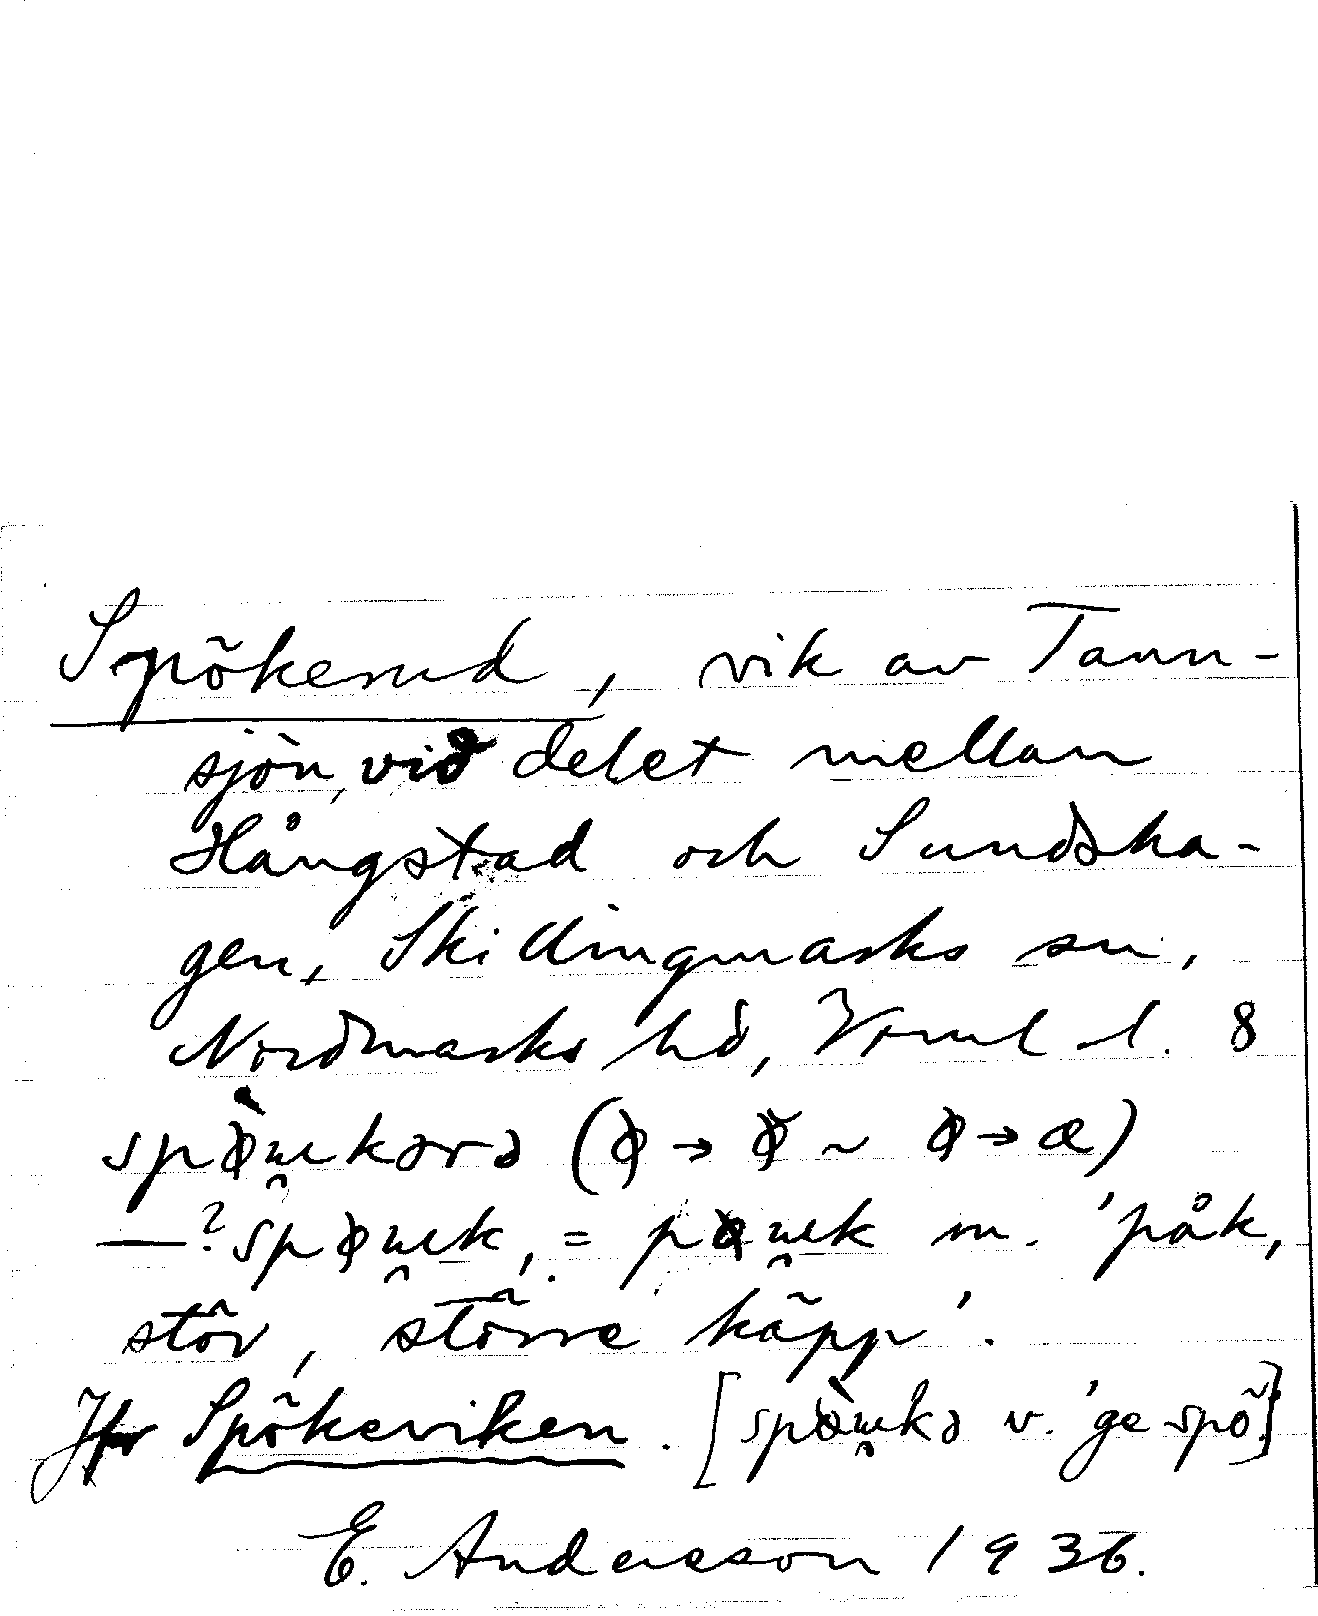 Spökerud, vik av Tann-
sjön, vid delet mellan
Hångstad och Sundsha-
gen, Skillingmarks sn,
Nordmarks hd, Vrml l. 8
?
= m. 'påk,
stör, större käpp'.
Jfr Spökeviken. [v. 'ge spö']
E. Andersson 1936.